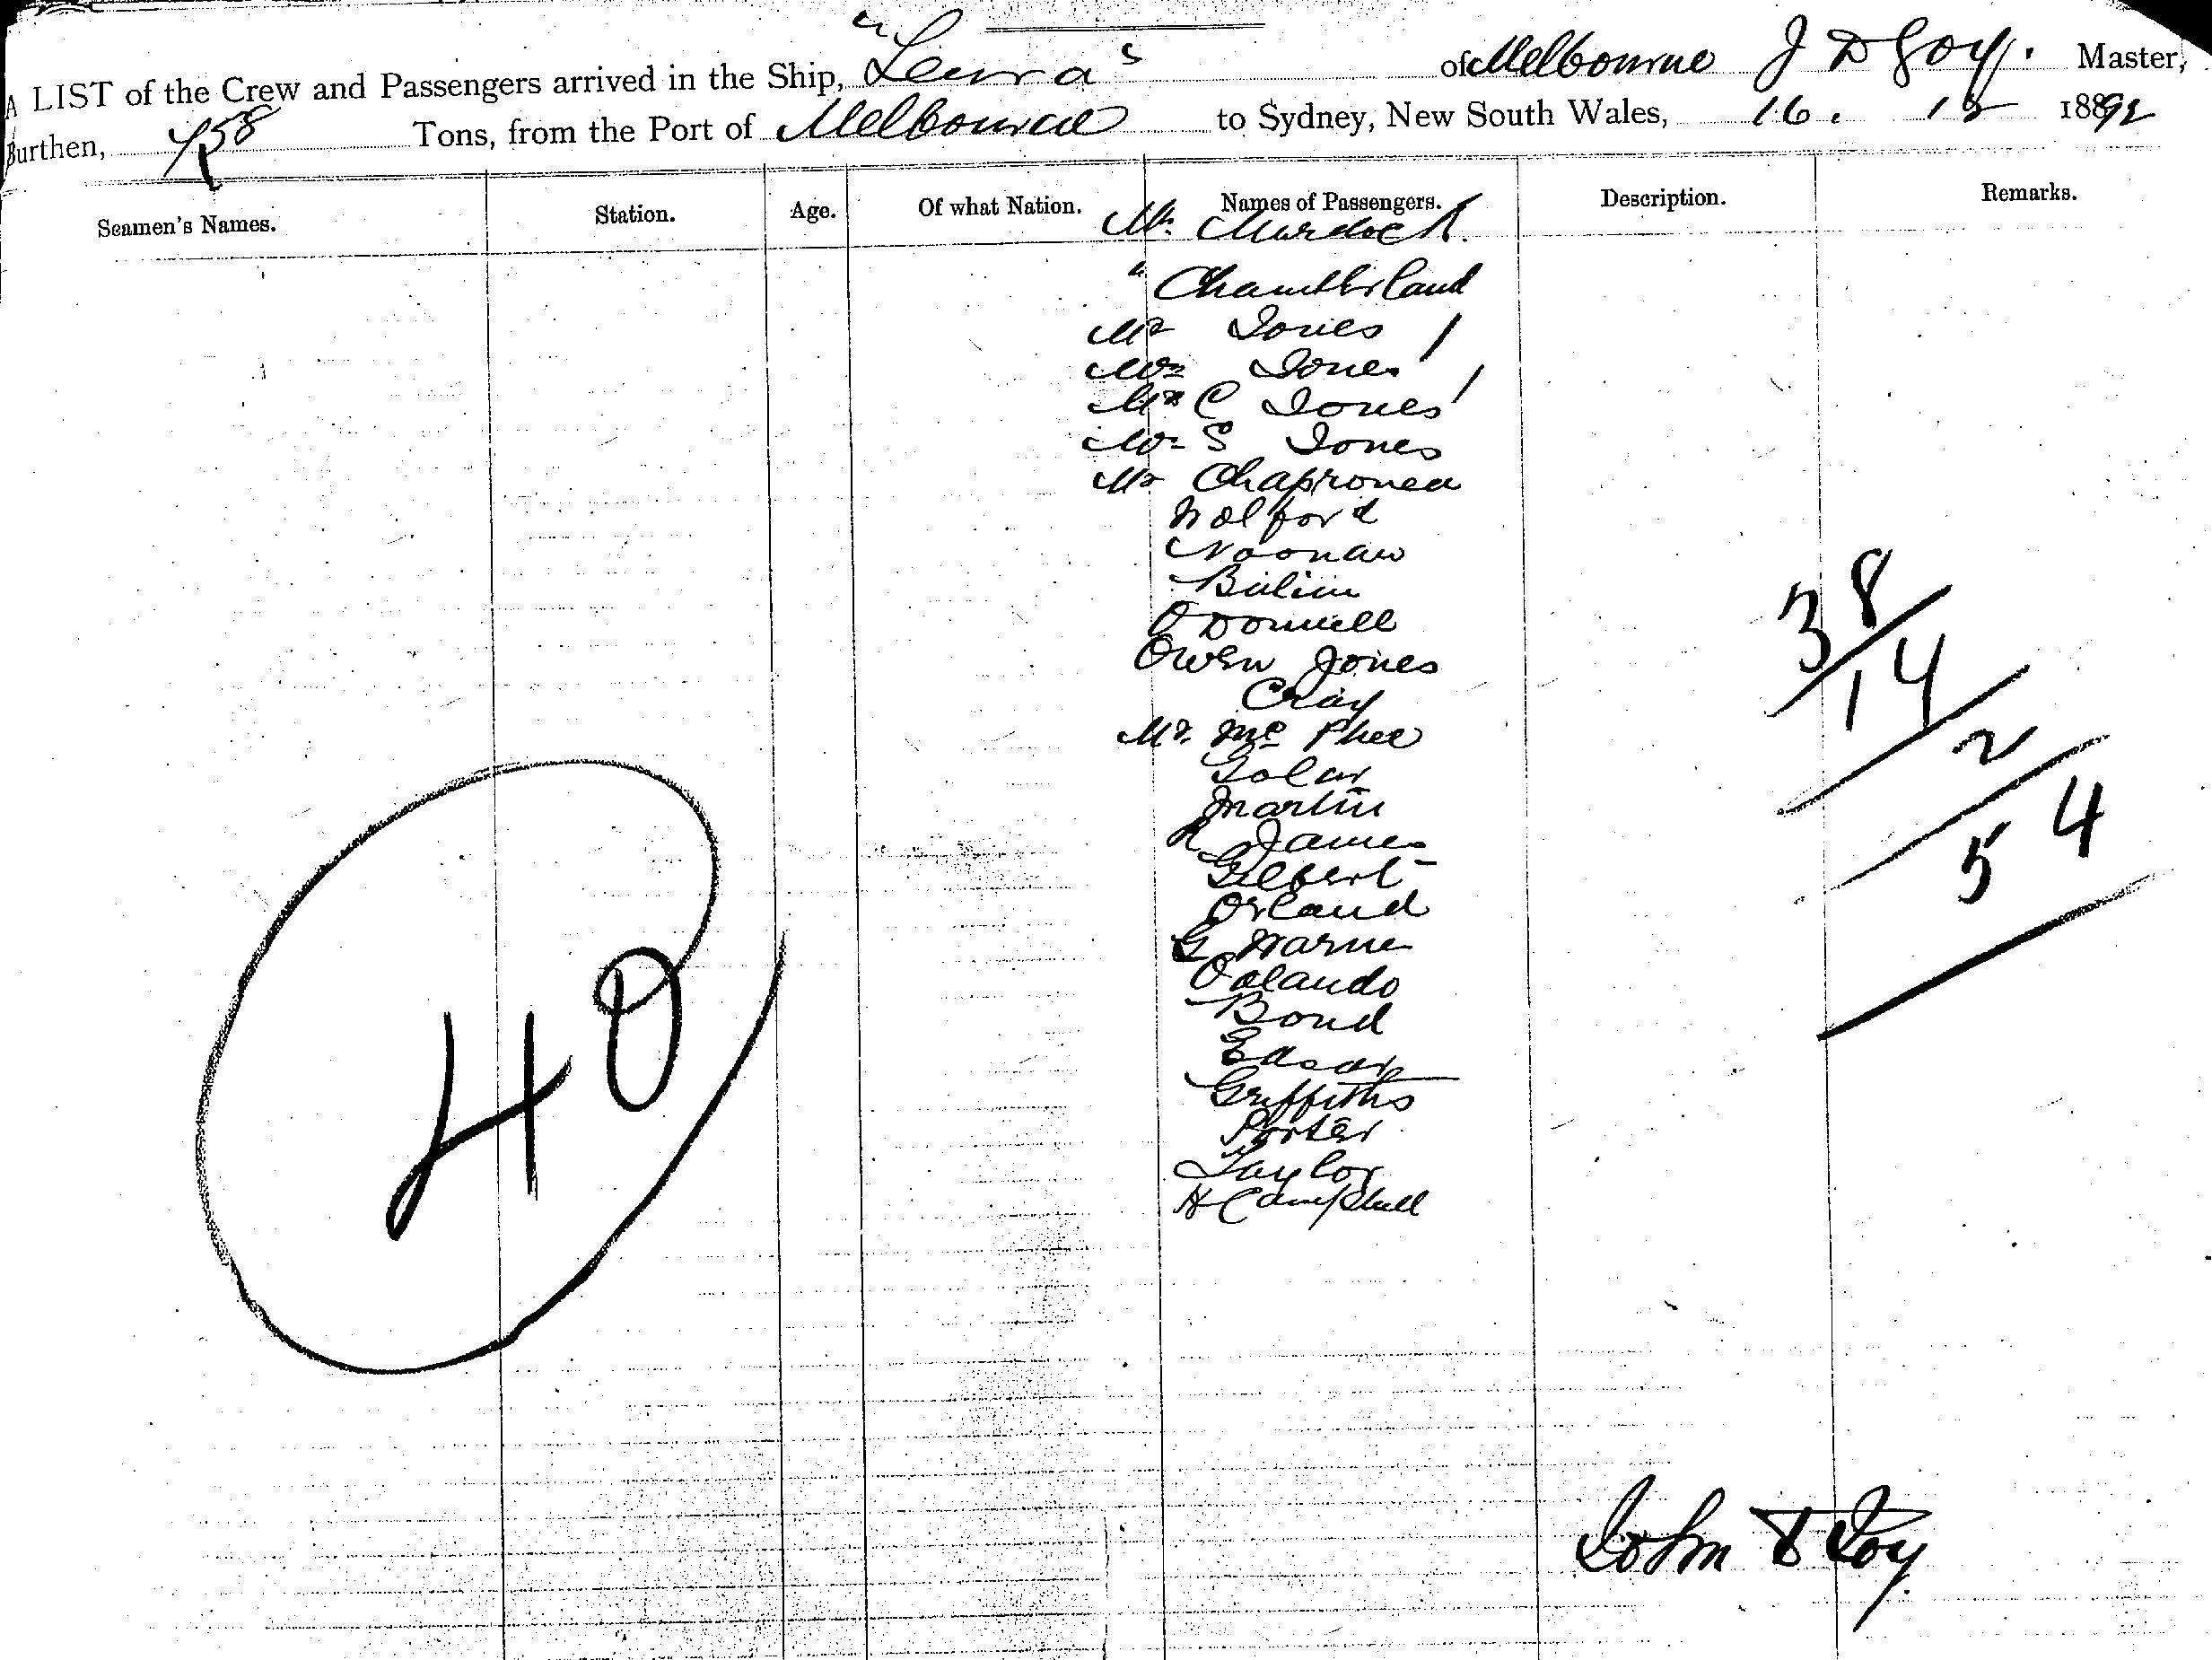 A LIST of the Crew and Passengers arrived in the Ship, "Leura" of Melbourne J D Joy. Master,
Burthen, 458 Tons, from the Port of Melbourne to Sydney, New South Wales, 16. 12 1892
Seamen's Names. Station. Age. Of what Nation. Names of Passengers. Description. Remarks.
Mr. Murdock
" Chamberland
Mr Jones
Mrs Jones
Mr C Jones
Mr S Jones
Mr
Walford
Noonan
O Donnell
Owen Jones
Cray
Mr. Mc Phee
Martin
R James
Gilbert
Orland
G Warne
Orlando
Bond
Edgar
Griffiths
Porter
Taylor
H Campbell
38
14
2
54
40
John D Joy